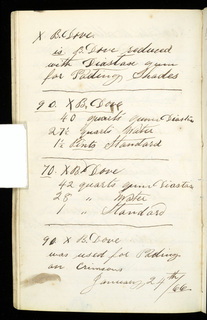 X B. Dove
is B. Dove reduced
with Diastase gum
for Padding Shades
90 X B. Dove
40 quarts gum Diastas
27½ quarts Water
1½ Pints Standard
70. X B. Dove
42 quarts gum Diastas
28 " Water
1 " Standard
90 X B. Dove
was used for Padding
on Crimsons
January 24th/66